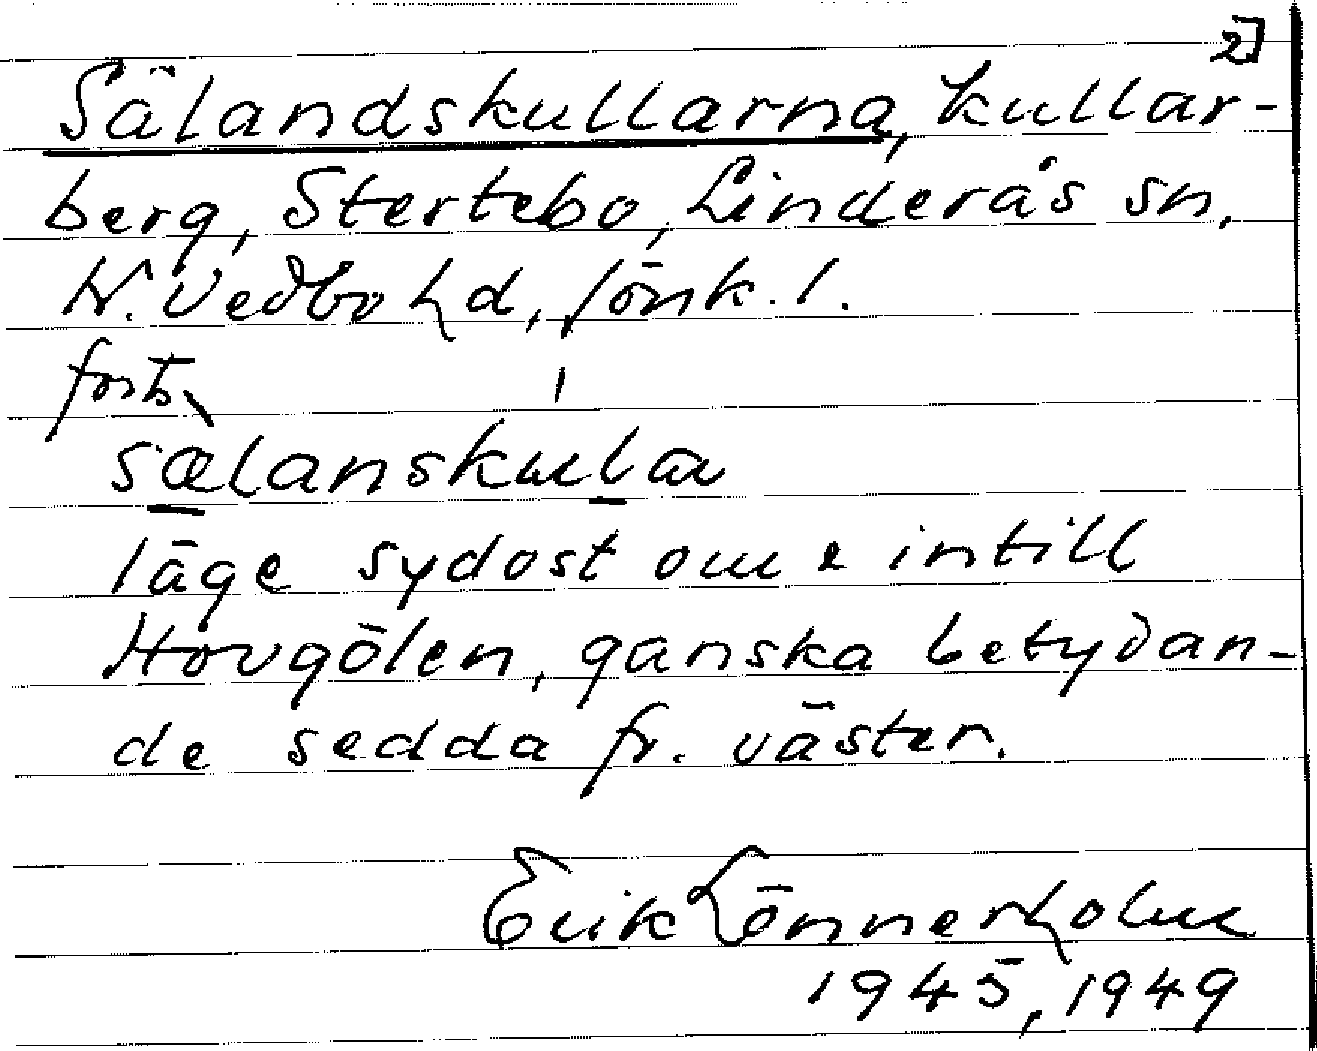 2]
Sälandskullarna, kullar-
berg, Stertebo, Linderås sn,
N. Vedbo hd, Jönk. l.
forts.
sælanskular
läge sydost om & intill
Hovgölen, ganska betydan-
de sedda fr. väster.
Erik Lönnerholm
1945, 1949